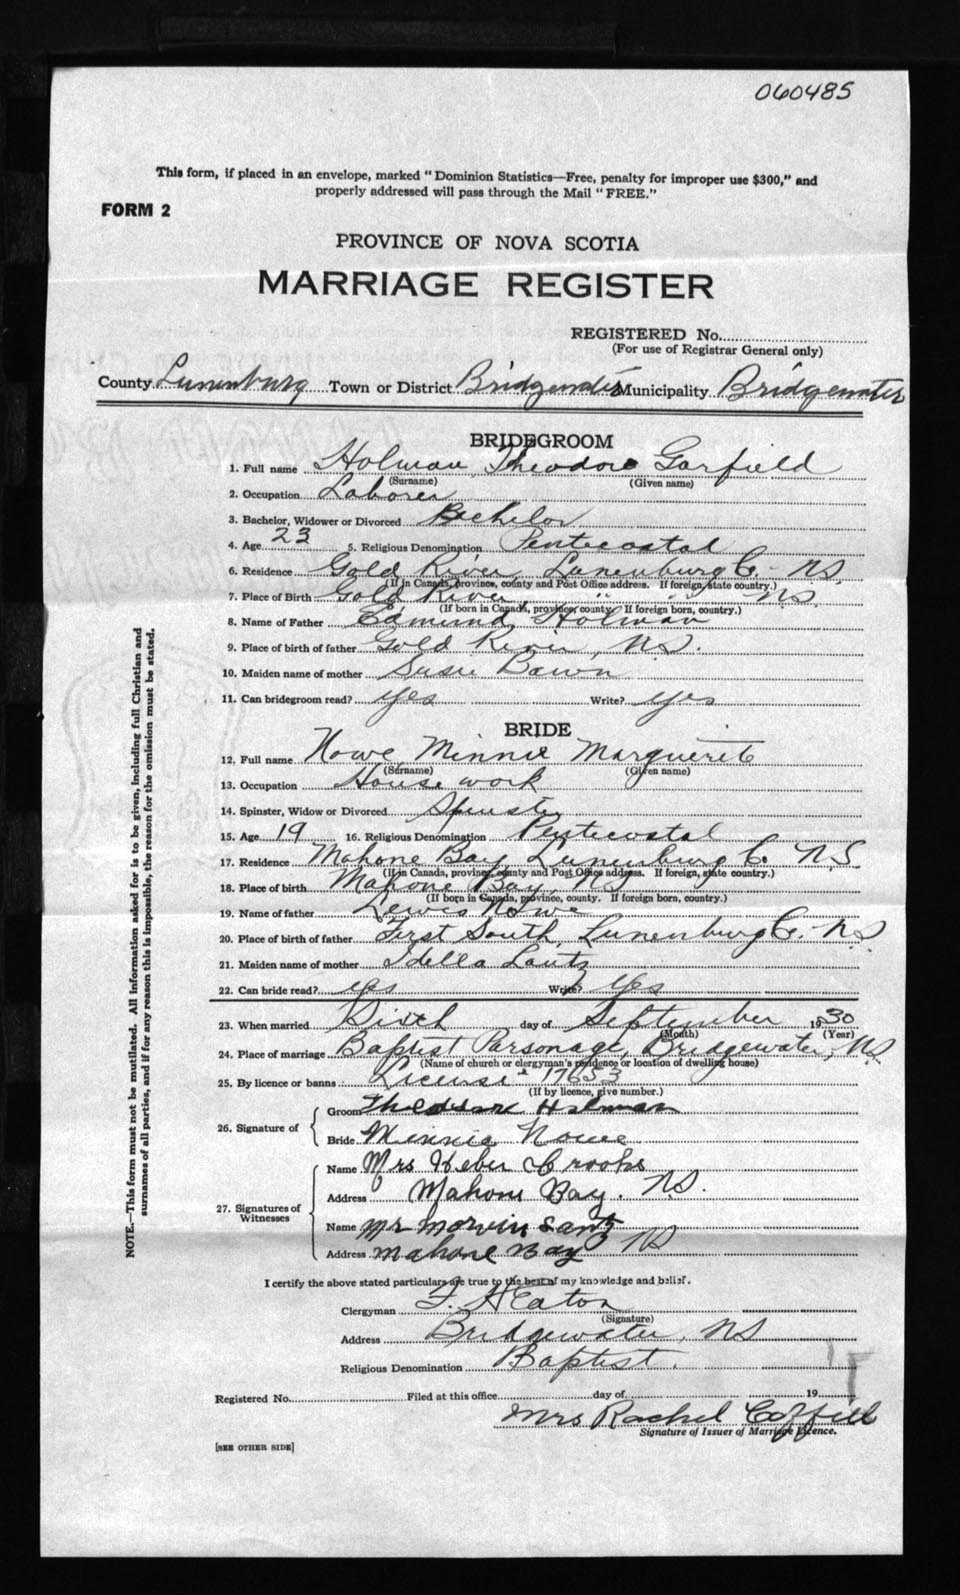 060485
This form, if placed in an envelope, marked "Dominion Statistics—Free, penalty for improper use $300," and
properly addressed will pass through the Mail "FREE."
FORM 2
PROVINCE OF NOVA SCOTIA
MARRIAGE REGISTER
REGISTERED No.
(For use of Registrar General only)
County Lunenburg Town or District Bridgewater Municipality Bridgewater
BRIDEGROOM
1. Full name Holman Theodore Garfield
(Surname) (Given name)
2. Occupation Laborer
3. Bachelor, Widower or Divorced Bachelor
4. Age 23 5. Religious Denomination Pentecostal
6. Residence Gold River, Lunenburg Co. NS.
(If in Canada, province, county and Post Office address. If foreign, state country.)
7. Place of Birth Gold River, " " NS.
(If born in Canada, province, county. If foreign born, country.)
8. Name of Father Edmund Holman
9. Place of birth of father Gold River, NS.
10. Maiden name of mother Susie
11. Can bridegroom read? yes Write? yes
BRIDE
12. Full name Nowe Minnie Marguerite
(Surname) (Given name)
13. Occupation House work
14. Spinster, Widow or Divorced Spinster
15. Age 19 16. Religious Denomination Pentecostal
17. Residence Mahone Bay, Lunenburg Co. NS
(If in Canada, province, county and Post Office address. If foreign, state country.)
18. Place of birth Mahone Bay, NS
(If born in Canada, province, county. If foreign born, country.)
19. Name of father Lewis Nowe
20. Place of birth of father First South, Lunenburg Co. NS
21. Maiden name of mother Idella Lantz
22. Can bride read? yes Write? yes
23. When married Sixth day of September 1930
(Month) (Year)
24. Place of marriage Baptist Parsonage, Bridgewater, NS
(Name of church or clergyman's residence or location of dwelling house)
25. By licence or banns License 17653
(If by licence, give number.)
26. Signature of
Groom Theodore Holman
Bride Minnie Nowe
27. Signatures of Witnesses
Name Mrs Heber Crooks
Address Mahone Bay. NS.
Name Mr Morvin Lantz
Address Mahone Bay NS
I certify the above stated particulars are true to the best of my knowledge and belief.
Clergyman F. H Eaton
(Signature)
Address Bridgewater, NS
Religious Denomination Baptist.
Registered No. Filed at this office day of 19
Mrs Rachel
Signature of Issuer of Marriage Licence.
[SEE OTHER SIDE]
NOTE.—This form must not be mutilated. All information asked for is to be given, including full Christian and
surnames of all parties, and if for any reason this is impossible, the reason for the omission must be stated.